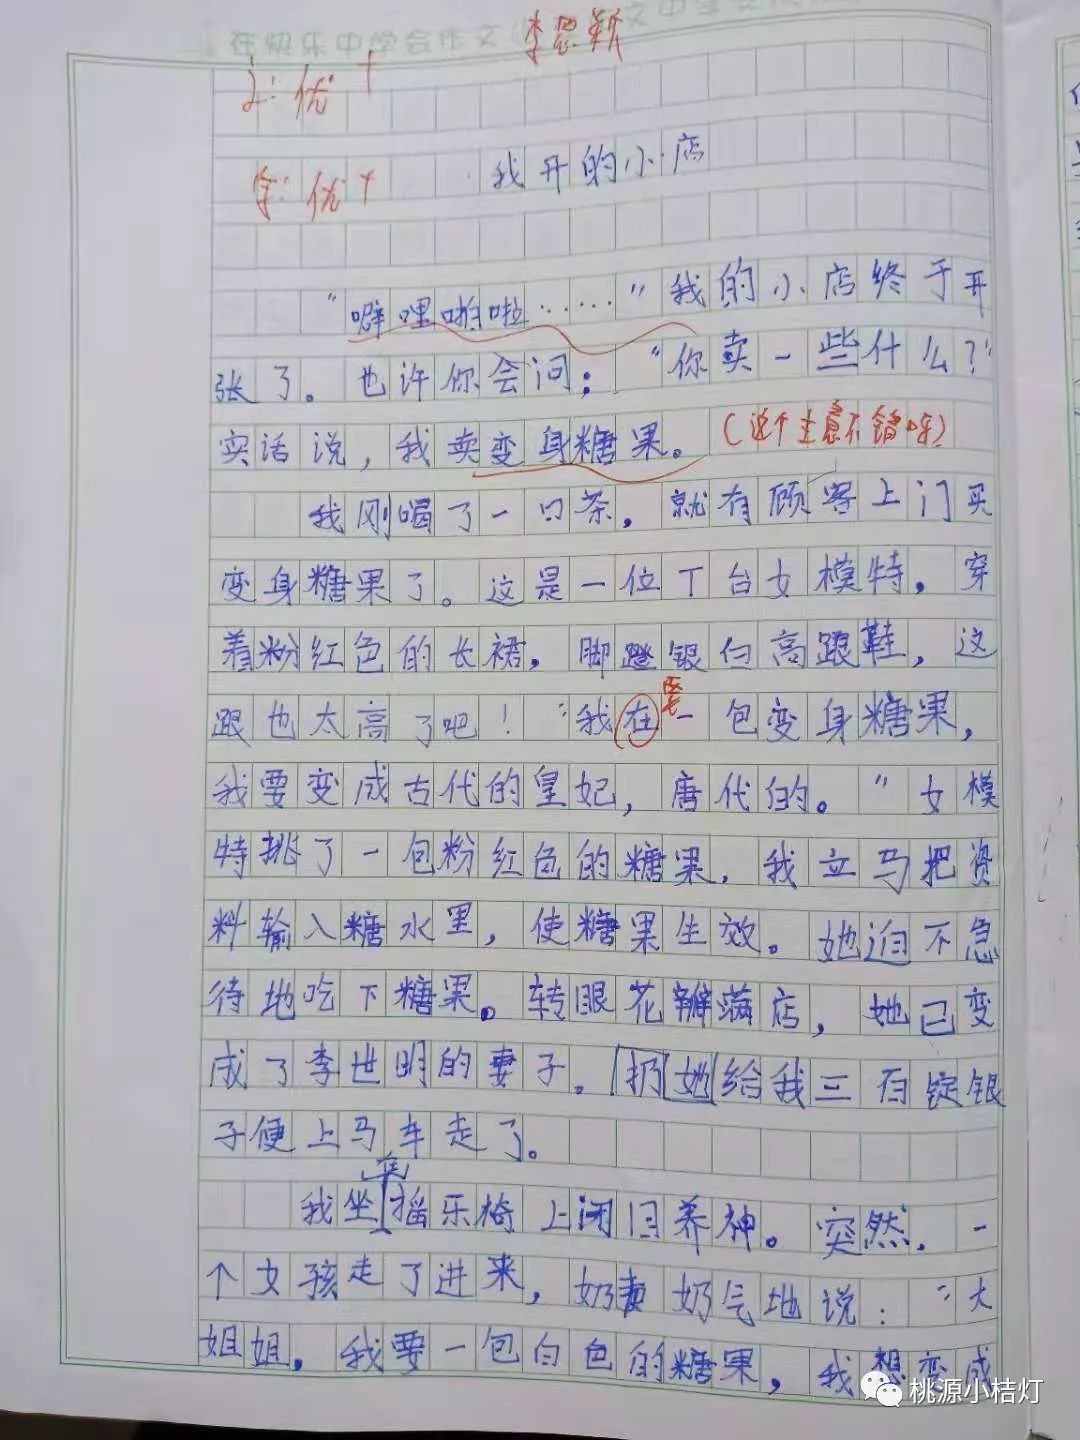 在快乐中学会作文
李思颖
文:优+
字:优+
我开的小店
“噼哩啪啦……”我的小店终于开
张了。也许你会问:“你卖一些什么?”
实话说,我卖变身糖果。(这个主意不错呀)
我刚喝了一口茶,就有顾客上门买
变身糖果了。这是一位T台女模特,穿
着粉红色的长裙,脚蹬银白高跟鞋,这
跟也太高了吧!“我在要一包变身糖果,
我要变成古代的皇妃,唐代的。”女模
特挑了一包粉红色的糖果,我立马把资
料输入糖水里,使糖果生效。她迫不急
待地吃下糖果。转眼花瓣满店,她已变
成了李世明的妻子。扔她给我三百锭银
子便上马车走了。
我坐摇乐椅上闭目养神。突然,一
个女孩走了进来,奶声奶气地说:“大
姐姐,我要一包白色的糖果,我想变成
桃源小桔灯